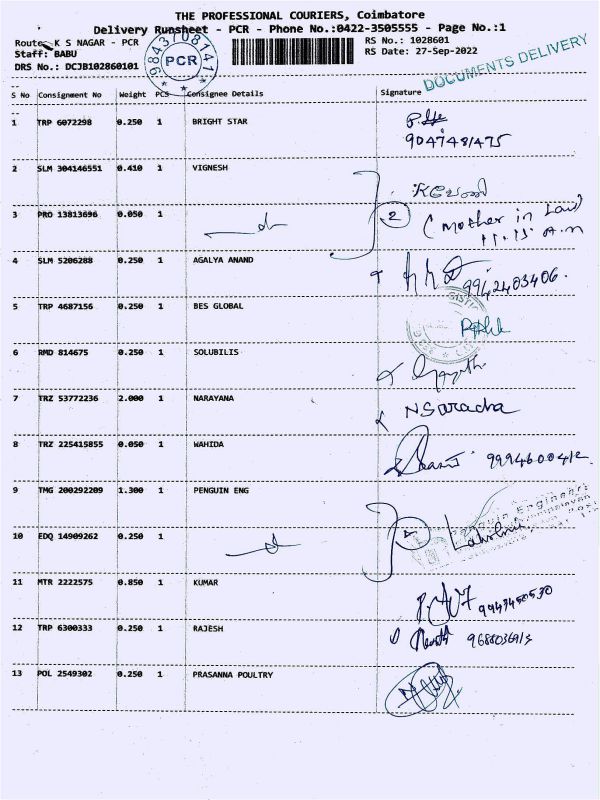 THE PROFESSIONAL COURIERS, Coimbatore
Delivery Runsheet - PCR - Phone No.:0422-3505555 - Page No.:1
Route: K S NAGAR - PCR
RS No.: 1028601
Staff: BABU
RS Date: 27-Sep-2022
DRS No.: DCJB102860101
9843708141
PCR
DOCUMENTS DELIVERY
S No Consignment No Weight PCS Consignee Details Signature
1 TRP 6072298 0.250 1 BRIGHT STAR
9047481475
2 SLM 304146551 0.410 1 VIGNESH
3 PRO 13813696 0.050 1 2 (Mother in Law)
11.15 A.m
4 SLM 5206288 0.250 1 AGALYA ANAND 9942403406.
5 TRP 4687156 0.250 1 BES GLOBAL
6 RMD 814675 0.250 1 SOLUBILIS
7 TRZ 53772236 2.000 1 NARAYANA
8 TRZ 225415855 0.050 1 WAHIDA
9 TMG 200292209 1.300 1 PENGUIN ENG
Penguin Engineeri
10 EDQ 14909262 0.250 1
11 MTR 2222575 0.850 1 KUMAR
12 TRP 6300333 0.250 1 RAJESH
13 POL 2549302 0.250 1 PRASANNA POULTRY